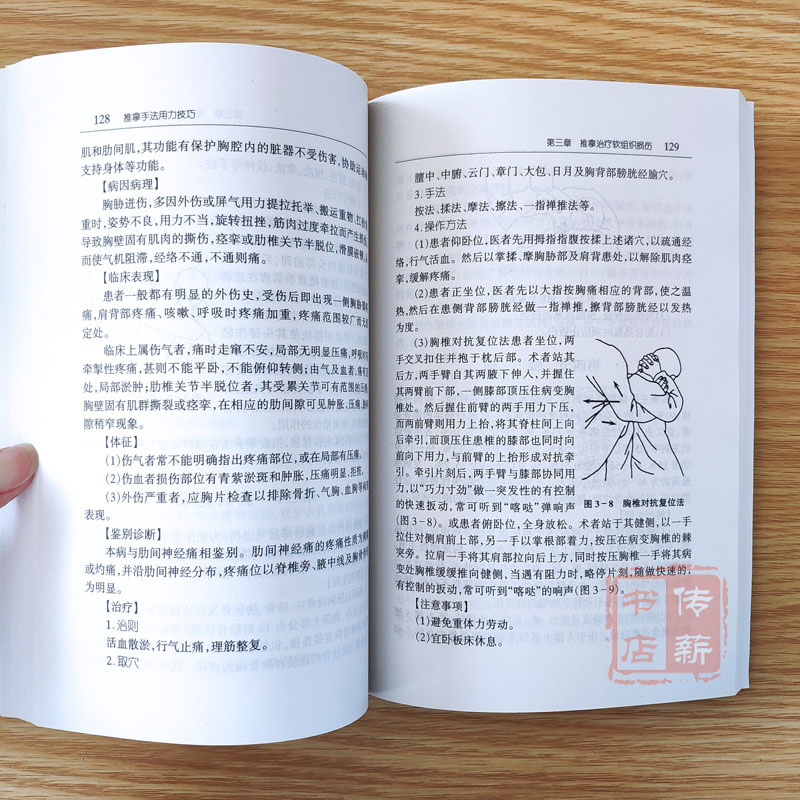 128 推拿手法用力技巧
肌和肋间肌,其功能有保护胸腔内的脏器不受伤害,协助运
支持身体等功能。
【病因病理】
胸胁迸伤,多因外伤或屏气用力提拉托举、搬运重物、扛
重时,姿势不良,用力不当,旋转扭挫,筋肉过度牵拉而产生
导致胸壁固有肌肉的撕伤,痉挛或肋椎关节半脱位,滑膜
而使气机阻滞,经络不通,不通则痛。
【临床表现】
患者一般都有明显的外伤史,受伤后即出现一侧胸胁部
痛,肩背部疼痛、咳嗽、呼吸时疼痛加重,疼痛范围较广而无
定处。
临床上属伤气者,痛时走窜不安,局部无明显压痛,呼吸时
牵掣性疼痛,甚则不能平卧、不能俯仰转侧;由气及血者,痛
处,局部淤肿,肋椎关节半脱位者,其受累关节可有范围的压
胸壁固有肌群撕裂或痉挛,在相应的肋间隙可见肿胀、压痛、肋
隙稍窄现象。
【体征】
(1)伤气者常不能明确指出疼痛部位,或在局部有压痛。
(2)伤血者损伤部位有青紫淤斑和肿胀,压痛明显,拒按。
(3)外伤严重者,应胸片检查以排除骨折、气胸、血胸等
表现。
【鉴别诊断】
本病与肋间神经痛相鉴别。肋间神经痛的疼痛性质为
或灼痛,并沿肋间神经分布,疼痛部位以脊椎旁、腋中线及胸骨
为明显。
【治疗】
1.治则
活血散淤,行气止痛,理筋整复。
2.取穴
第三章 推拿治疗软组织损伤 129
膻中、中腑、云门、章门、大包、日月及胸背部膀胱经腧穴。
3.手法
按法、揉法、摩法、擦法、一指禅推法等。
4.操作方法
(1)患者仰卧位,医者先用拇指指腹按揉上述诸穴,以疏通经
络,行气活血。然后以掌揉、摩胸胁部及肩背患处,以解除肌肉痉
挛,缓解疼痛。
(2)患者正坐位,医者先以大指按胸痛相应的背部,使之温
热,然后在患侧背部膀胱经做一指禅推,擦背部膀胱经以发热
为度。
(3)胸椎对抗复位法患者坐位,两
手交叉扣住并抱于枕后部。术者站其
后方,两手臂自其两腋下伸入,并握住
其两臂前下部,一侧膝部顶压住病变胸
椎处。然后握住前臂的两手用力下压,
而两前臂则用力上抬,将其脊柱向上向
后牵引,而顶压住患椎的膝部也同时向
前向下用力,与前臂的上抬形成对抗牵
引。牵引片刻后,两手臂与膝部协同用
力,以“巧力寸劲”做一突发性的有控制
的快速扳动,常可听到“喀哒”弹响声
图3-8 胸椎对抗复位法
(图3-8)。或患者俯卧位,全身放松。术者站于其健侧,一手
拉住对侧肩前上部,另一手以掌根部着力,按压在病变胸椎的棘
突旁。拉肩一手将其肩部拉向后上方,同时按压胸椎一手将其病
变处胸椎缓缓推向健侧,当遇有阻力时,略停片刻,随做快速的,
有控制的扳动,常可听到“喀哒”的响声(图3-9)。
【注意事项】
(1)避免重体力劳动。
(2)宜卧板床休息。
传薪
书店